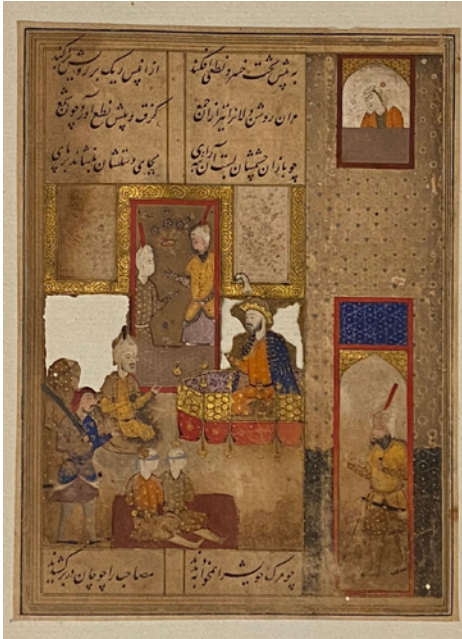 به پیش تخت خسرو نطعی افکند از آن پس ریک بر رویش پراکند
مران روشن دلانرا تیز از آن جمع کرفت و پیش نطع آورد چون شمع
چو بازان چشمشان بست آن رای بجای دستشان بنشاند بر پای
چو مرک خویش را همخوابه دیدند مصاحب را چو جان در بر کشیدند